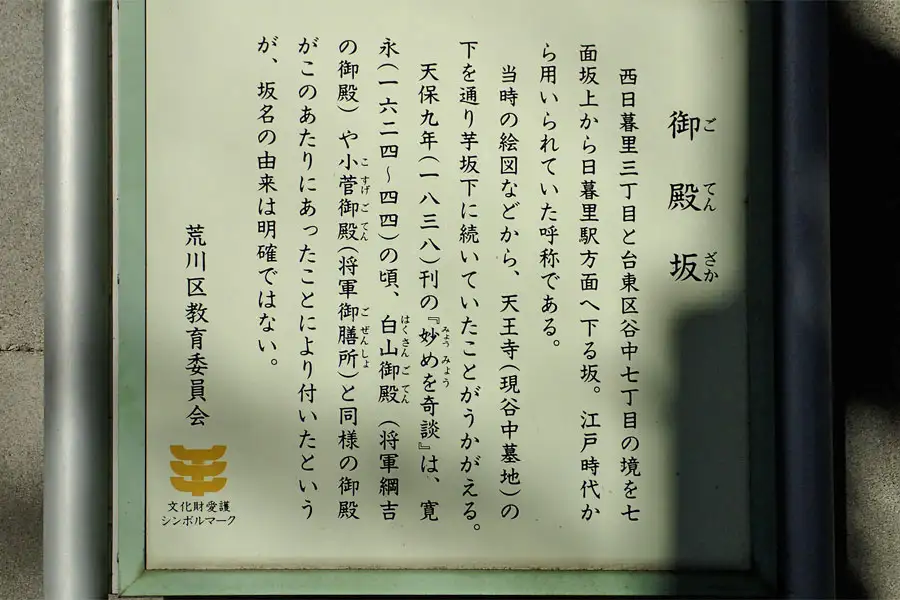 御殿坂
ごてんざか
西日暮里三丁目と台東区谷中七丁目の境を七
面坂上から日暮里駅方面へ下る坂。江戸時代か
ら用いられていた呼称である。
当時の絵図などから、天王寺(現谷中墓地)の
下を通り芋坂下に続いていたことがうかがえる。
天保九年(一八三八)刊の『妙めを奇談』は、寛
みょうみょう
永(一六二四~四四)の頃、白山御殿(将軍綱吉
はくさんごてん
の御殿)や小菅御殿(将軍御膳所)と同様の御殿
こすげごてん ごぜんしょ
がこのあたりにあったことにより付いたという
が、坂名の由来は明確ではない。
荒川区教育委員会
文化財愛護
シンボルマーク